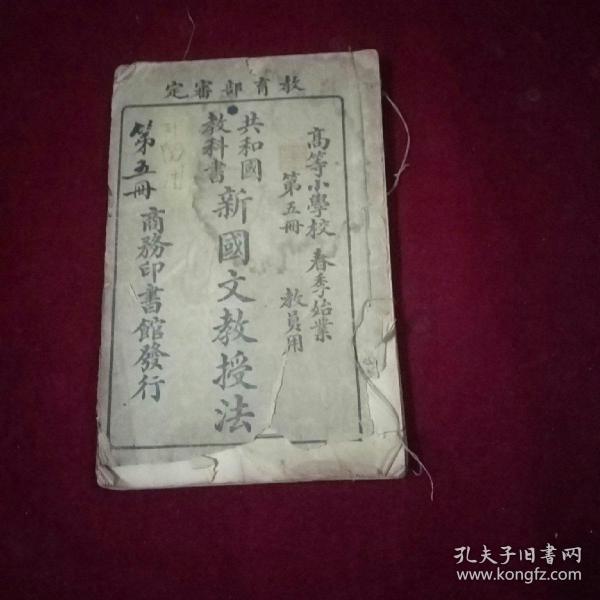 教育部審定
高等小學校 春季始業
第五冊 教員用
共和國
教科書
新國文教授法
第五冊
商務印書館發行
孔夫子旧书网
www.kongfz.com